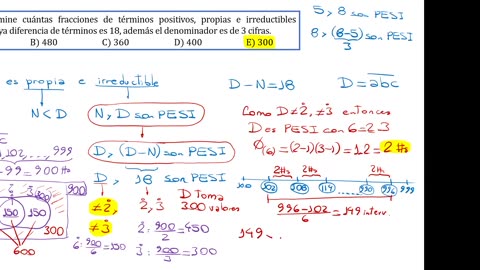 mine cuántas fracciones de términos positivos, propias e irreductibles
ya diferencia de términos es 18, además el denominador es de 3 cifras.
B) 480 C) 360 D) 400 E) 300
5, 8 son PESI
8, (8-5) son PESI
3
es propia e irreductible
D-N=18 D=abc
N<D
N, D son PESI
Como D≠2̊, ≠3̊ entonces
D es PESI con 6=2·3
Φ(6)=(2-1)(3-1)=1·2=2 #s
D, (D-N) son PESI
102,..., 999
-99=900 #s
D, 18 son PESI
2#s 2#s 2#s
100 102 108 114 990 996 999
≠2̊, 2̊, 3̊
≠3̊
D Toma
300 valores
996-102 = 149 interv.
6
900
150 150
300
600
2̊: 900/2=450
6̊: 900/6=150
3̊: 900/3=300
149